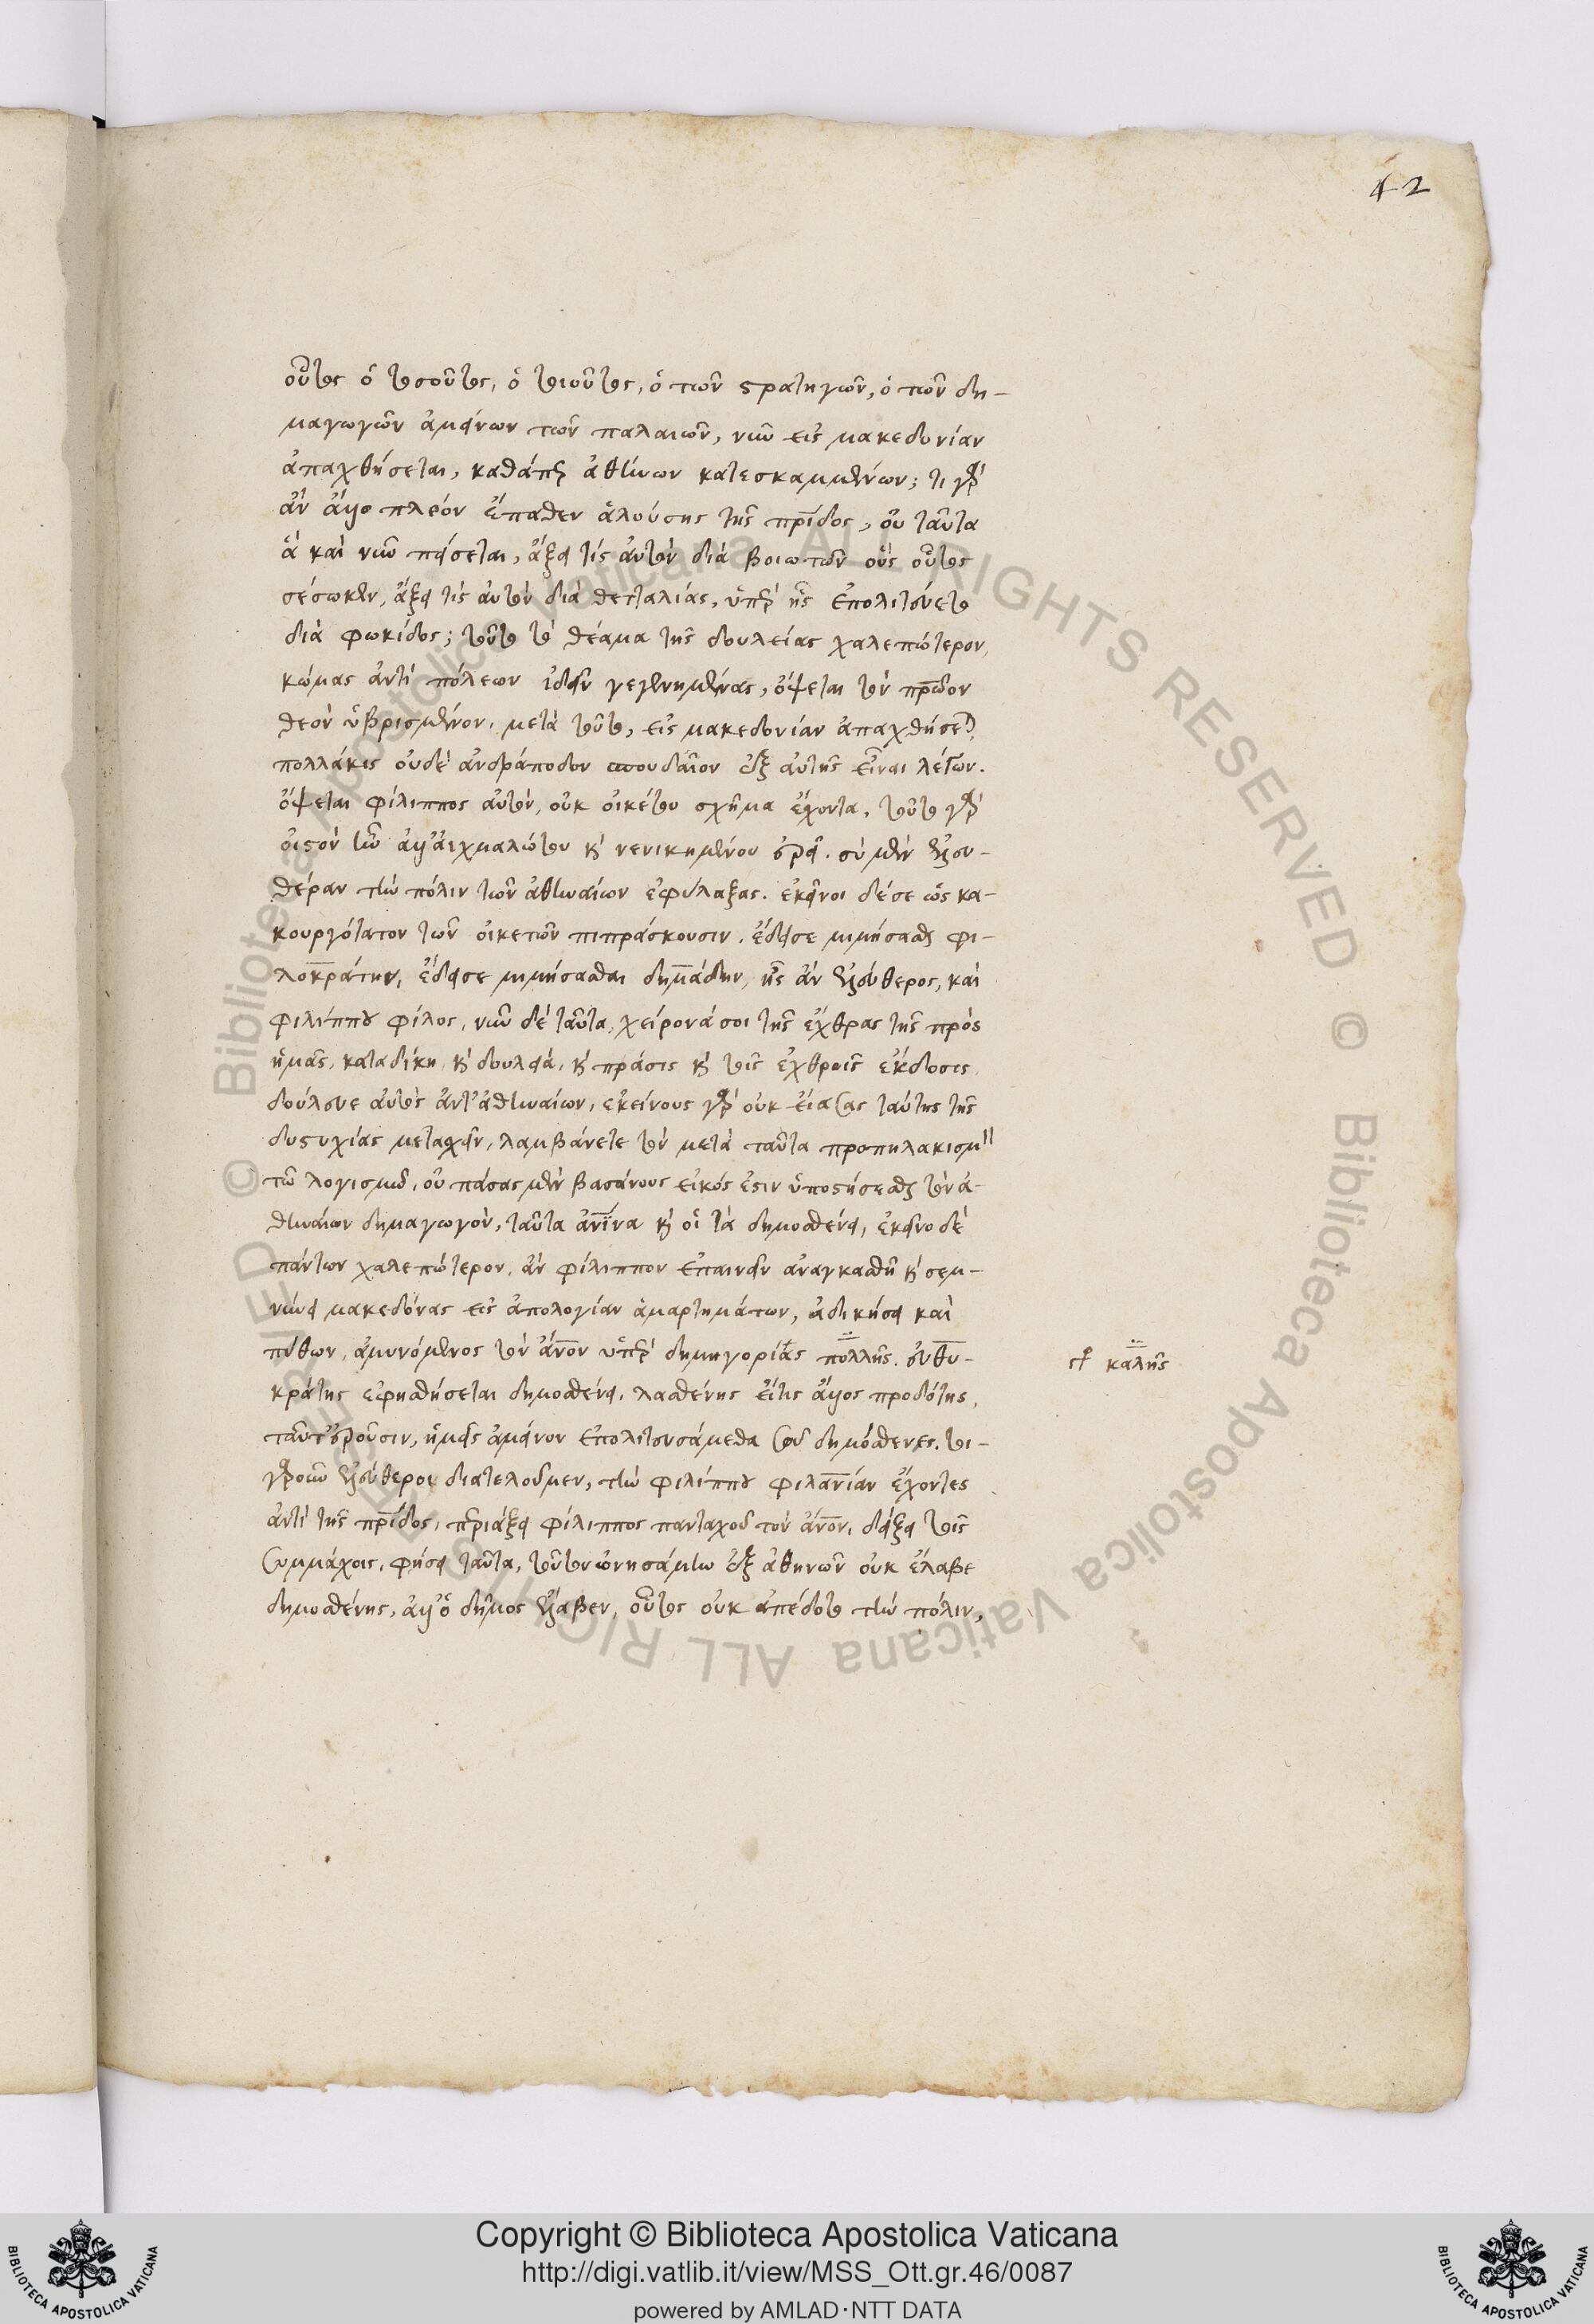 42
οὗτος ὁ τοσοῦτος, ὁ τοιοῦτος, ὁ τῶν στρατηγῶν, ὁ τῶν δη-
μαγωγῶν ἀμείνων τῶν παλαιῶν, νῦν εἰς μακεδονίαν
ἀπαχθήσεται, καθάπερ ἀθηνῶν κατεσκαμμένων; τί γὰρ
ἂν ἄλλο πλέον ἔπαθεν ἁλούσης τῆς πρίδος, οὐ ταῦτα
ἃ καὶ νῦν πείσεται, ἄξει τίς αὐτὸν διὰ βοιωτῶν οὓς οὗτος
σέσωκεν, ἄξει τίς αὐτὸν διὰ θετταλίας, ὑπὲρ ἧς ἐπολιτεύετο
διὰ φωκίδος; τοῦτο τὸ θέαμα τῆς δουλείας χαλεπώτερον,
κώμας ἀντὶ πόλεων ἰδεῖν γεγενημένας, ὄψεται τὸν πρῶτον
θεὸν ὑβρισμένον, μετὰ τοῦτο, εἰς μακεδονίαν ἀπαχθήσεται,
πολλάκις οὐδὲ ἀνδράποδον σπουδαῖον ἐξ αὐτῆς εἶναι λέγων.
ὄψεται φίλιππος αὐτὸν, οὐκ οἰκέτου σχῆμα ἔχοντα, τοῦτο γὰρ
οἰστὸν ἦν ἀλλ' αἰχμαλώτου καὶ νενικημένου ἐρεῖ. σὺ μὲν ἐλευ-
θέραν τὴν πόλιν τῶν ἀθηναίων ἐφύλαξας. ἐκεῖνοι δέ σε ὡς κα-
κουργότατον τῶν οἰκετῶν πιπράσκουσιν. ἔδει σε μιμήσασθαι φι-
λοκράτην, ἔδει σε μιμήσασθαι δημάδην, ἦς ἂν ἐλεύθερος, καὶ
φιλίππου φίλος, νῦν δὲ ταῦτα, χείρονά σοι τῆς ἔχθρας τῆς πρὸς
ἡμᾶς, καταδίκη, καὶ δουλεία, καὶ πράσις καὶ τοῖς ἐχθροῖς ἔκδοσις,
δούλευε αὐτὸς ἀντ' ἀθηναίων, ἐκείνους γὰρ οὐκ εἴασας ταύτης τῆς
δυστυχίας μετασχεῖν, λαμβάνετε τὸν μετὰ ταῦτα προπηλακισμὸν
τῷ λογισμῷ, οὐ πάσας μὲν βασάνους εἰκός ἐστιν ὑποστήσεσθαι τὸν ἀ-
θηναίων δημαγωγὸν, ταῦτα ἀνῖνα καὶ οἱ τὰ δημοσθένει, ἐκεῖνο δὲ
πάντων χαλεπώτερον, ἂν φίλιππον ἐπαινεῖν ἀναγκασθῇ καὶ σεμ-
νύνει μακεδόνας εἰς ἀπολογίαν ἁμαρτημάτων, ἀδικήσει καὶ
πύθων, ἀμυνόμενος τὸν ἄνον ὑπὲρ δημηγορίας πολλῆς. εὐθυ-
κράτης ἐφησθήσεται δημοσθένει, λασθένης εἴτις ἄλλος προδότης,
ταῦτ' ἐροῦσιν, ἡμεῖς ἀμείνον ἐπολιτευσάμεθα σοῦ δημόσθενες. τοι-
γαροῦν ἐλεύθεροι διατελοῦμεν, τὴν φιλίππου φιλανίαν ἔχοντες
ἀντὶ τῆς πρίδος, περιάξει φίλιππος πανταχοῦ τὸν ἄνον, δείξει τοῖς
συμμάχοις, φήσει ταῦτα, τοῦτον ὠνησάμην ἐξ ἀθηνῶν οὐκ ἔλαβε
δημοσθένης, ἀλλ' ὁ δῆμος ἔλαβεν, οὗτος οὐκ ἀπέδοτο τὴν πόλιν,
καλῆς
Copyright © Biblioteca Apostolica Vaticana
http://digi.vatlib.it/view/MSS_Ott.gr.46/0087
powered by AMLAD·NTT DATA
BIBLIOTECA APOSTOLICA VATICANA
BIBLIOTECA APOSTOLICA VATICANA
© Biblioteca Apostolica Vaticana ALL RIGHTS RESERVED © Biblioteca Apostolica Vaticana ALL RIGHTS RESERVED